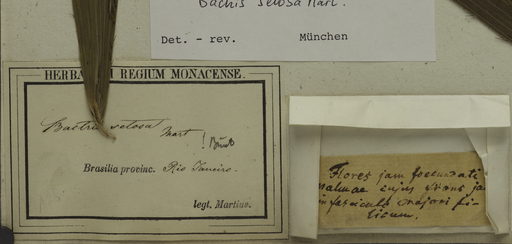 Bactris setosa Mart.
Det. - rev. München
HERBARIUM REGIUM MONACENSE.
Bactris setosa Mart !
Brasilia provinc. Rio Janeiro.
legt. Martius.
Flores jam foecundati
palmae cujus frons ja
in fasciculo majori fi-
licum.